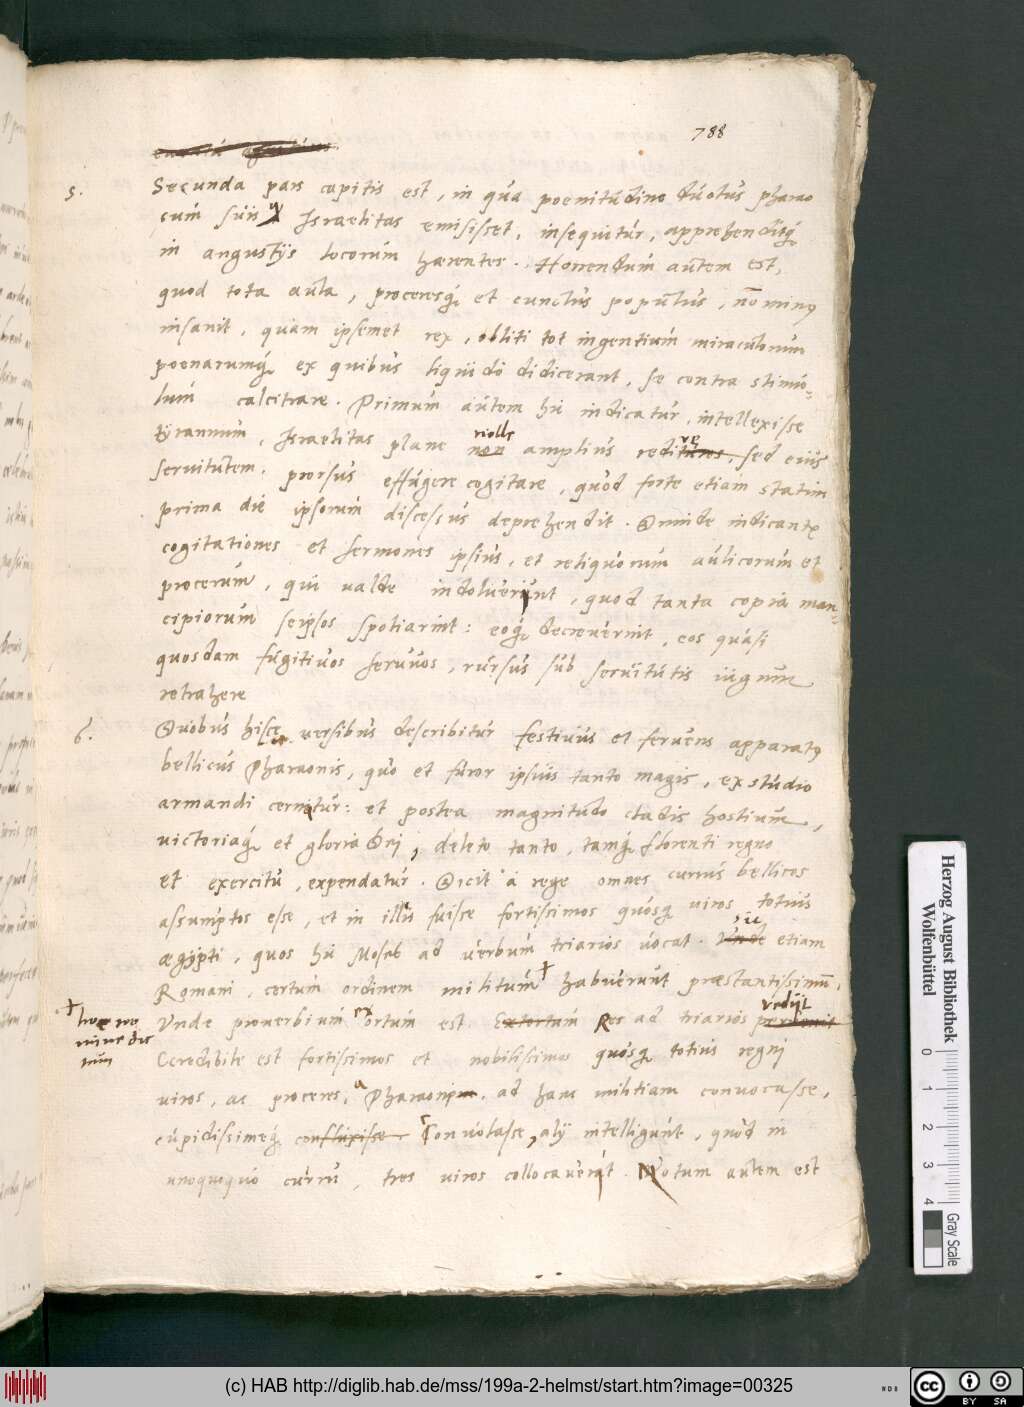 788
5.
Secunda pars capitis est, in qua poenitudine ductus pharao
cum suis, qd Israelitas emisisset, insequitur, apprehenditq́
in angustijs locorum haerentes. Horrendum autem est,
quod tota aula, proceresq́ et cunctus populus, non minus
insanit, quam ipsemet rex, obliti tot ingentium miraculorum
poenarumq́ ex quibus liquido didicerant, se contra stimu-
lum calcitrare. Primum autem hic indicatur, intellexisse
tyrannum, Israelitas plane non nolle amplius redituros re, sed eius
servitutem, prorsus effugere cogitare, quod forte etiam statim
prima die ipsorum discessus deprehendit. Deinde indicantr
cogitationes et sermones ipsius, et reliquorum aulicorum et
procerum, qui valde indoluerunt, quod tanta copia man-
cipiorum seipsos spoliarint: eoq́ decreverint, eos quasi
quosdam fugitivos servos, rursus sub servitutis iugum
retrahere
6.
Duobus hisce versibus describitur festivus et fervens apparatus
bellicus Pharaonis, quo et furor ipsius tanto magis, ex studio
armandi cernitur: et postea magnitudo cladis hostium,
victoriaq́ et gloria Dei, deleto tanto, tamq́ florenti regno
et exercitu, expendatur. Dicit a rege omnes currus bellicos
assumptos esse, et in illis fuisse fortissimos quosq́ viros totius
aegypti, quos hic Mosah ad verbum triarios vocat. Unde sic etiam
Romani, certum ordinem militum † habuerunt praestantissimum,
† hoc no
mine dic
tum
Unde proverbium ex ortum est. Extortum Res ad triarios pervenit redijt
Credibile est fortissimos et nobilissimos quosq́ totius regni
viros, ac proceres, a Pharaone, ad hanc militiam convocasse,
cupidissimeq́ confluxisse. Convolasse, alij intelligunt, quod in
unoquoquo curru, tres viros collocaverat. Notum autem est
Herzog August Bibliothek
Wolfenbüttel
0 1 2 3 4
Gray Scale
(c) HAB http://diglib.hab.de/mss/199a-2-helmst/start.htm?image=00325
cc BY SA